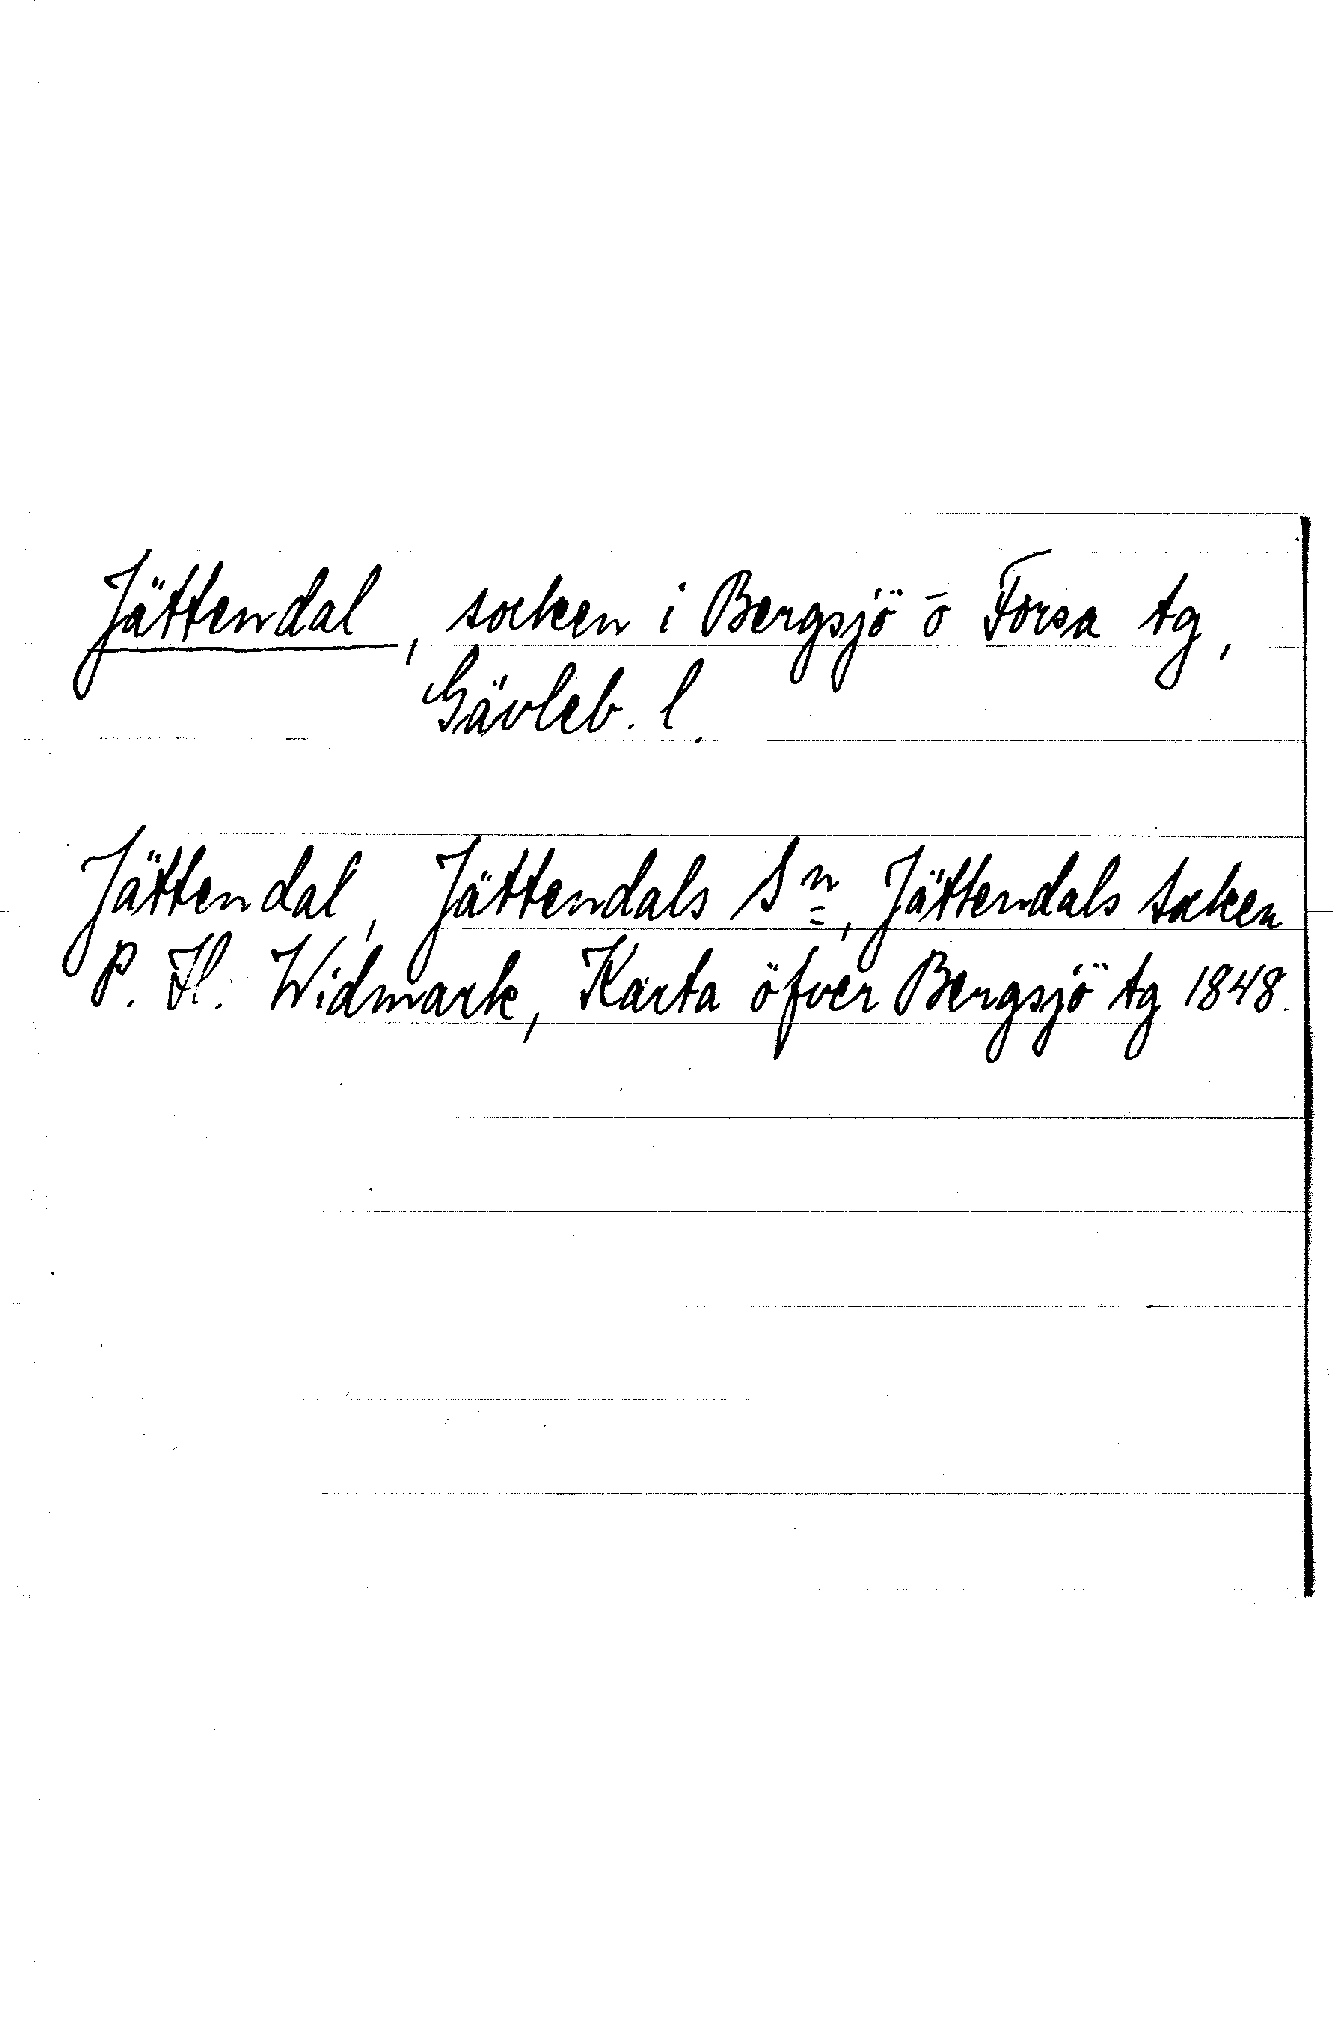 Jättendal, socken i Bergsjö o Forsa tg,
Gävleb. l.
Jättendal, Jättendals Sn, Jättendals socken
P. H. Widmark, Karta öfver Bergsjö tg 1848.